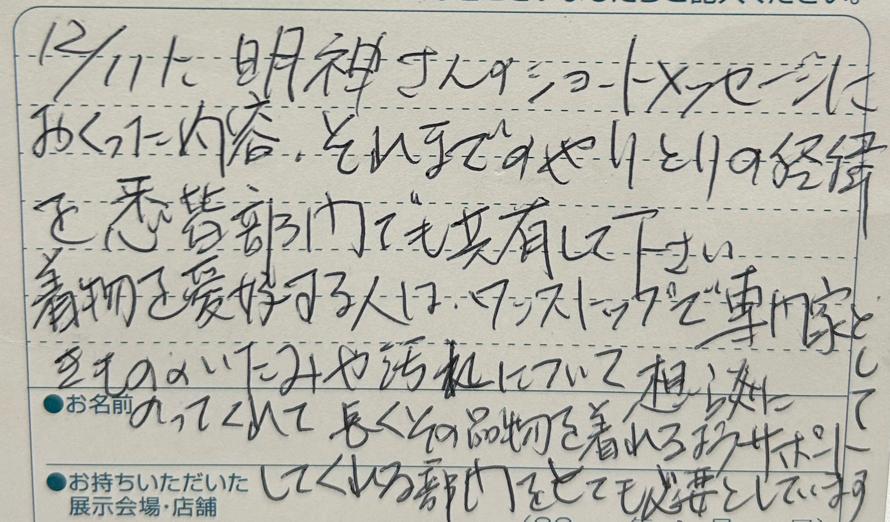 12/11に 明神さんのショートメッセージに
おくった内容、それまでのやりとりの経緯
を悉皆部門でも共有して下さい
着物を愛好する人は、ワンストップで専門家として
きもののいたみや汚れについて 想談に
●お名前 のってくれて 長くその品物を着れるようサポート
●お持ちいただいた してくれる部門をとても必要としています
展示会場・店舗